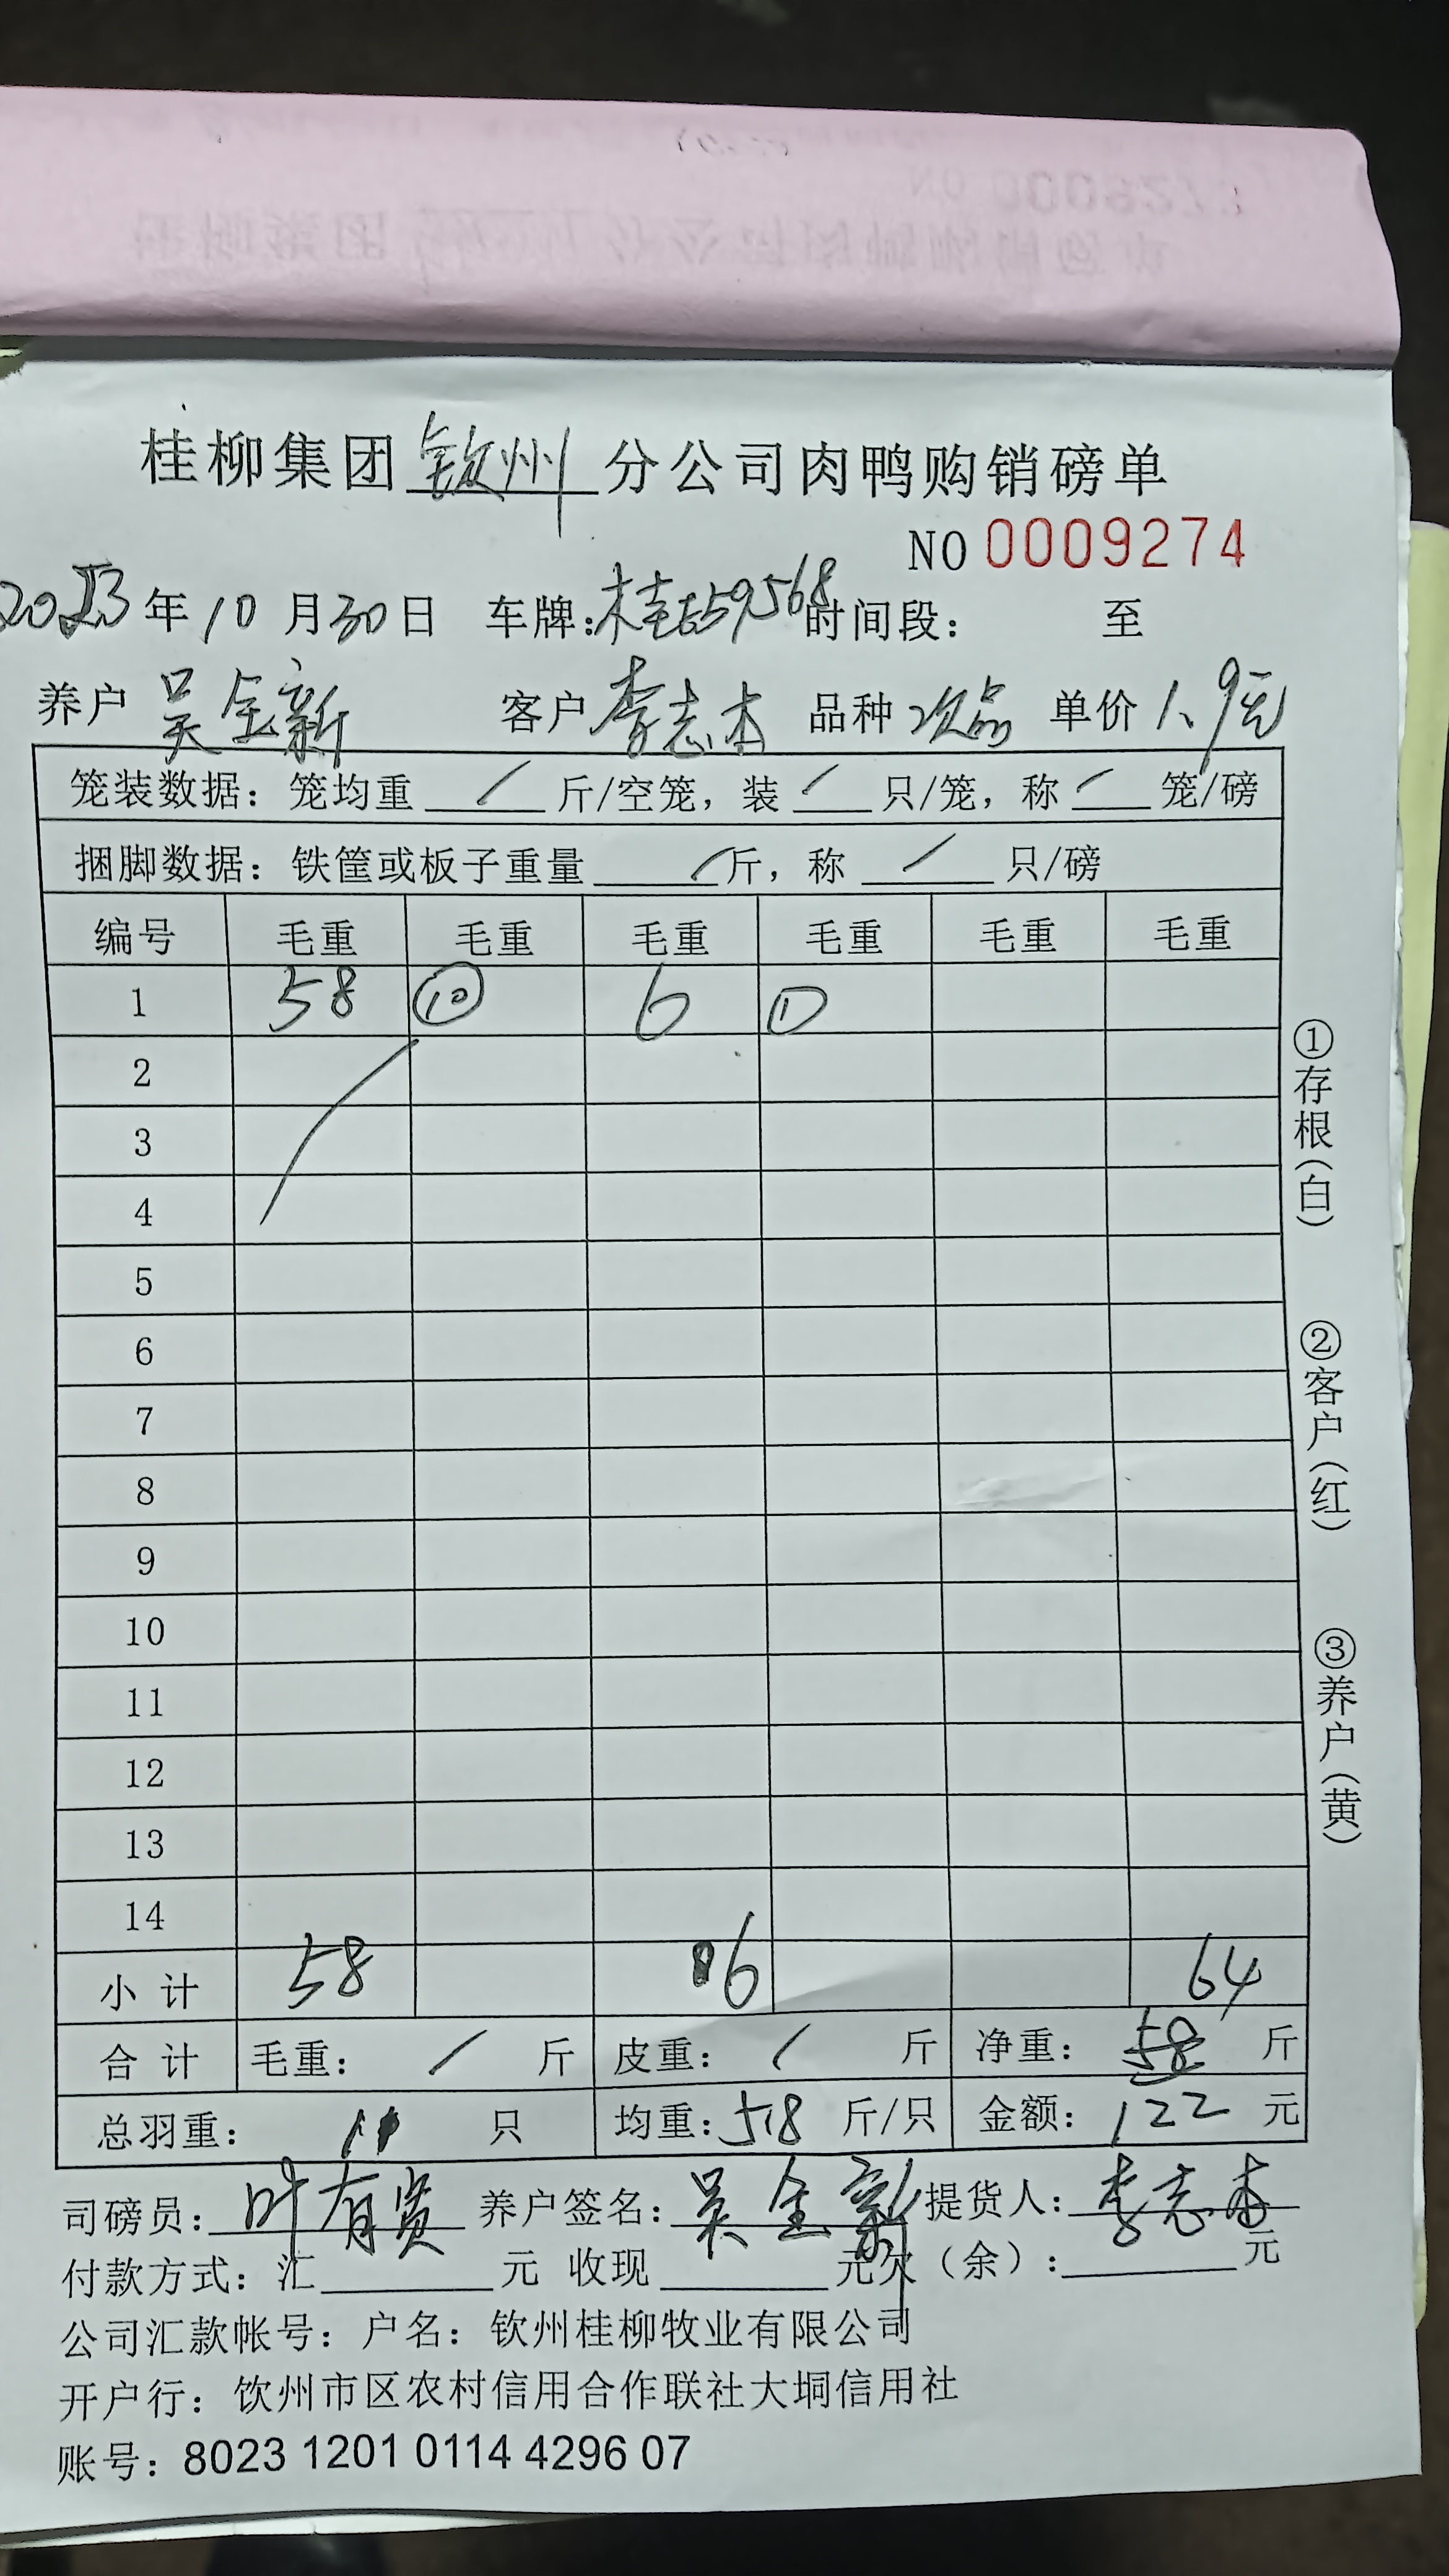 桂柳集团钦州分公司肉鸭购销磅单
NO 0009274
2023年10月30日 车牌:桂 59568 时间段: 至
养户 吴全新 客户 李志本 品种 次品 单价 1.9元
笼装数据:笼均重 / 斤/空笼,装 / 只/笼,称 / 笼/磅
捆脚数据:铁筐或板子重量 / 斤,称 / 只/磅
编号 毛重 毛重 毛重 毛重 毛重 毛重
1 58 ⑩ 6 ①
2
3
4
5
6
7
8
9
10
11
12
13
14
小计 58 6 64
合计 毛重: / 斤 皮重: / 斤 净重: 58 斤
总羽重: 11 只 均重:5.8 斤/只 金额: 122 元
司磅员:叶有贤 养户签名:吴全新 提货人:李志本
付款方式:汇 元 收现 元欠(余): 元
公司汇款帐号:户名:钦州桂柳牧业有限公司
开户行:钦州市区农村信用合作联社大垌信用社
账号:8023 1201 0114 4296 07
①存根(白)
②客户(红)
③养户(黄)